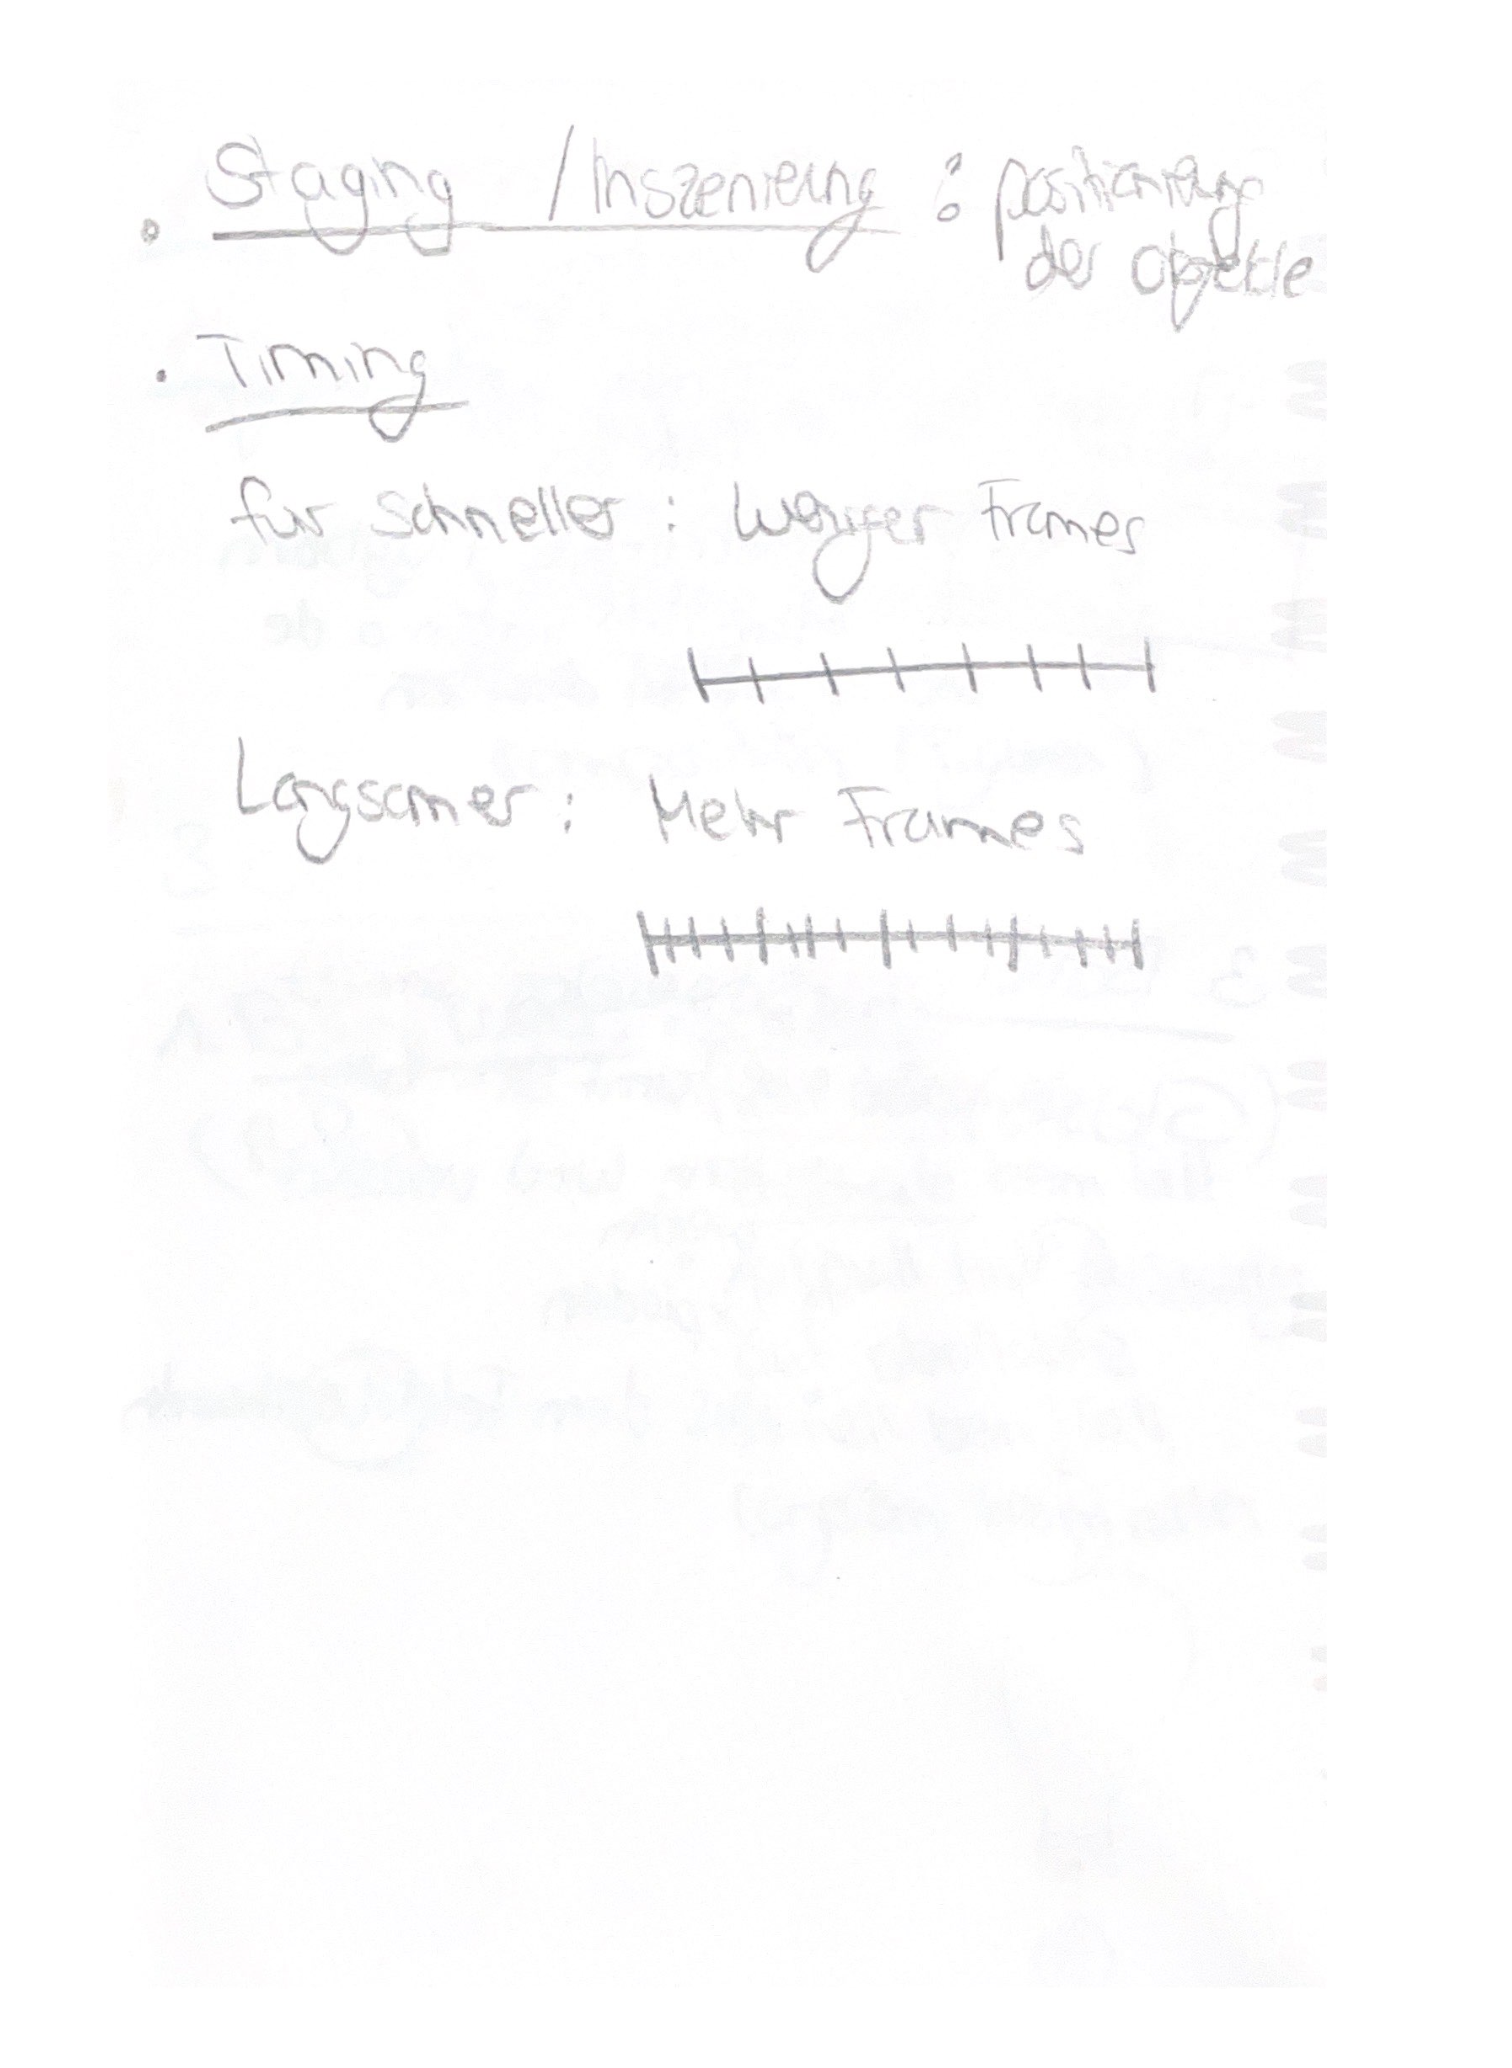 • Staging / Inszenierung : positionierung
der Objekte
• Timing
für schneller : weniger Frames
Langsamer : Mehr Frames